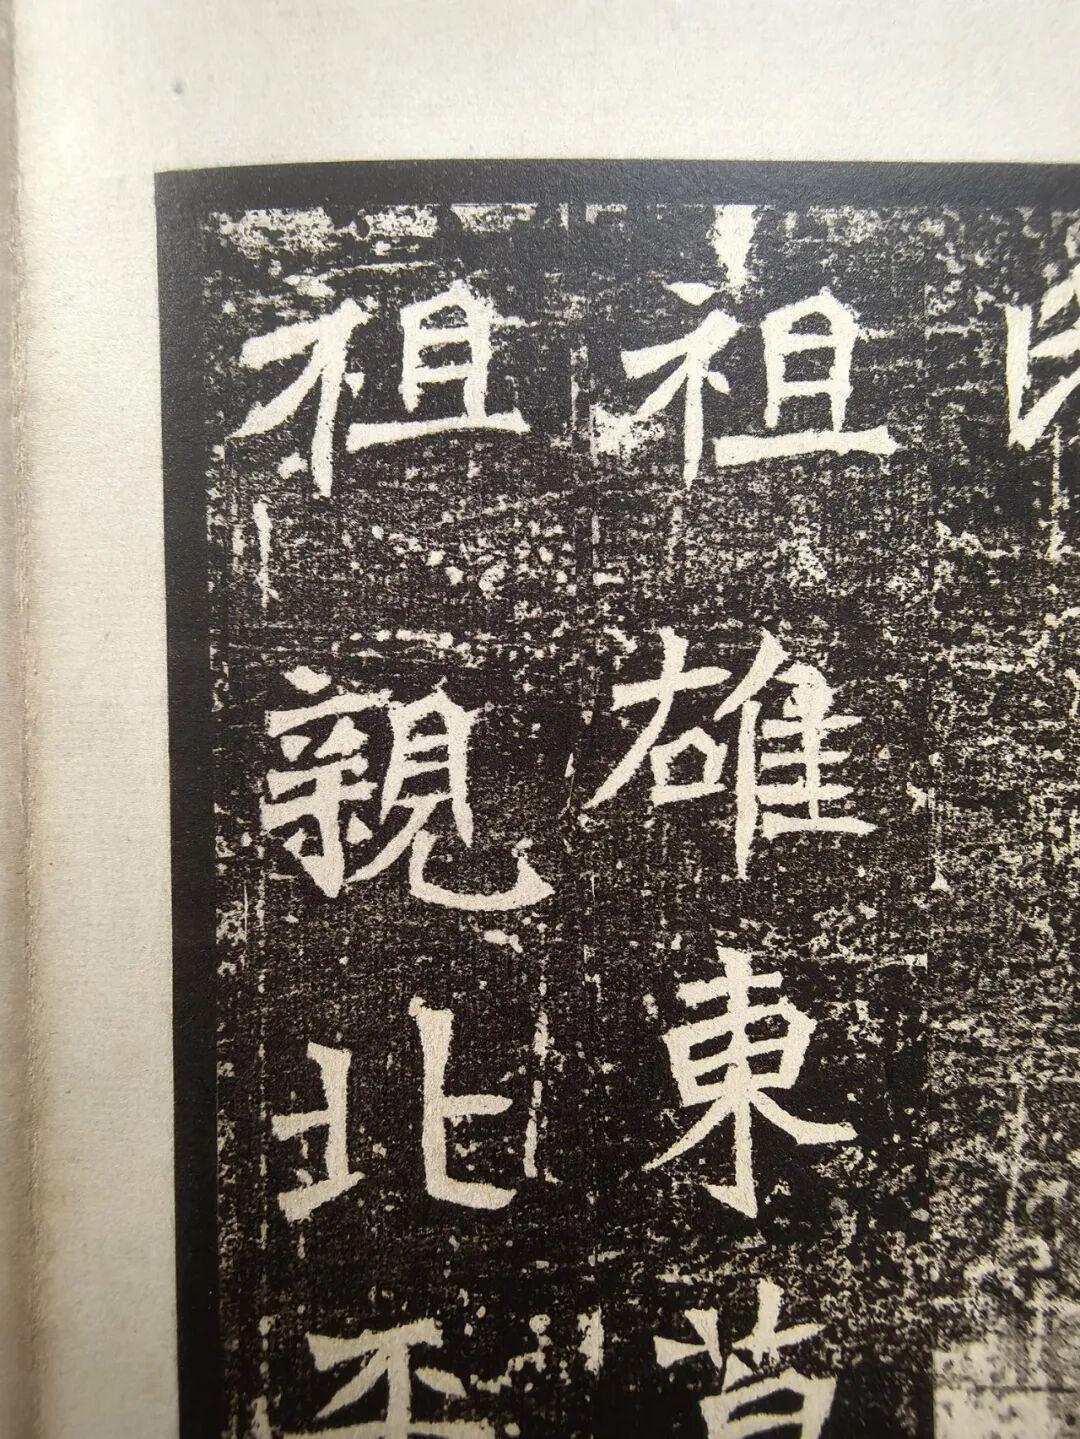 祖雄東
祖親北